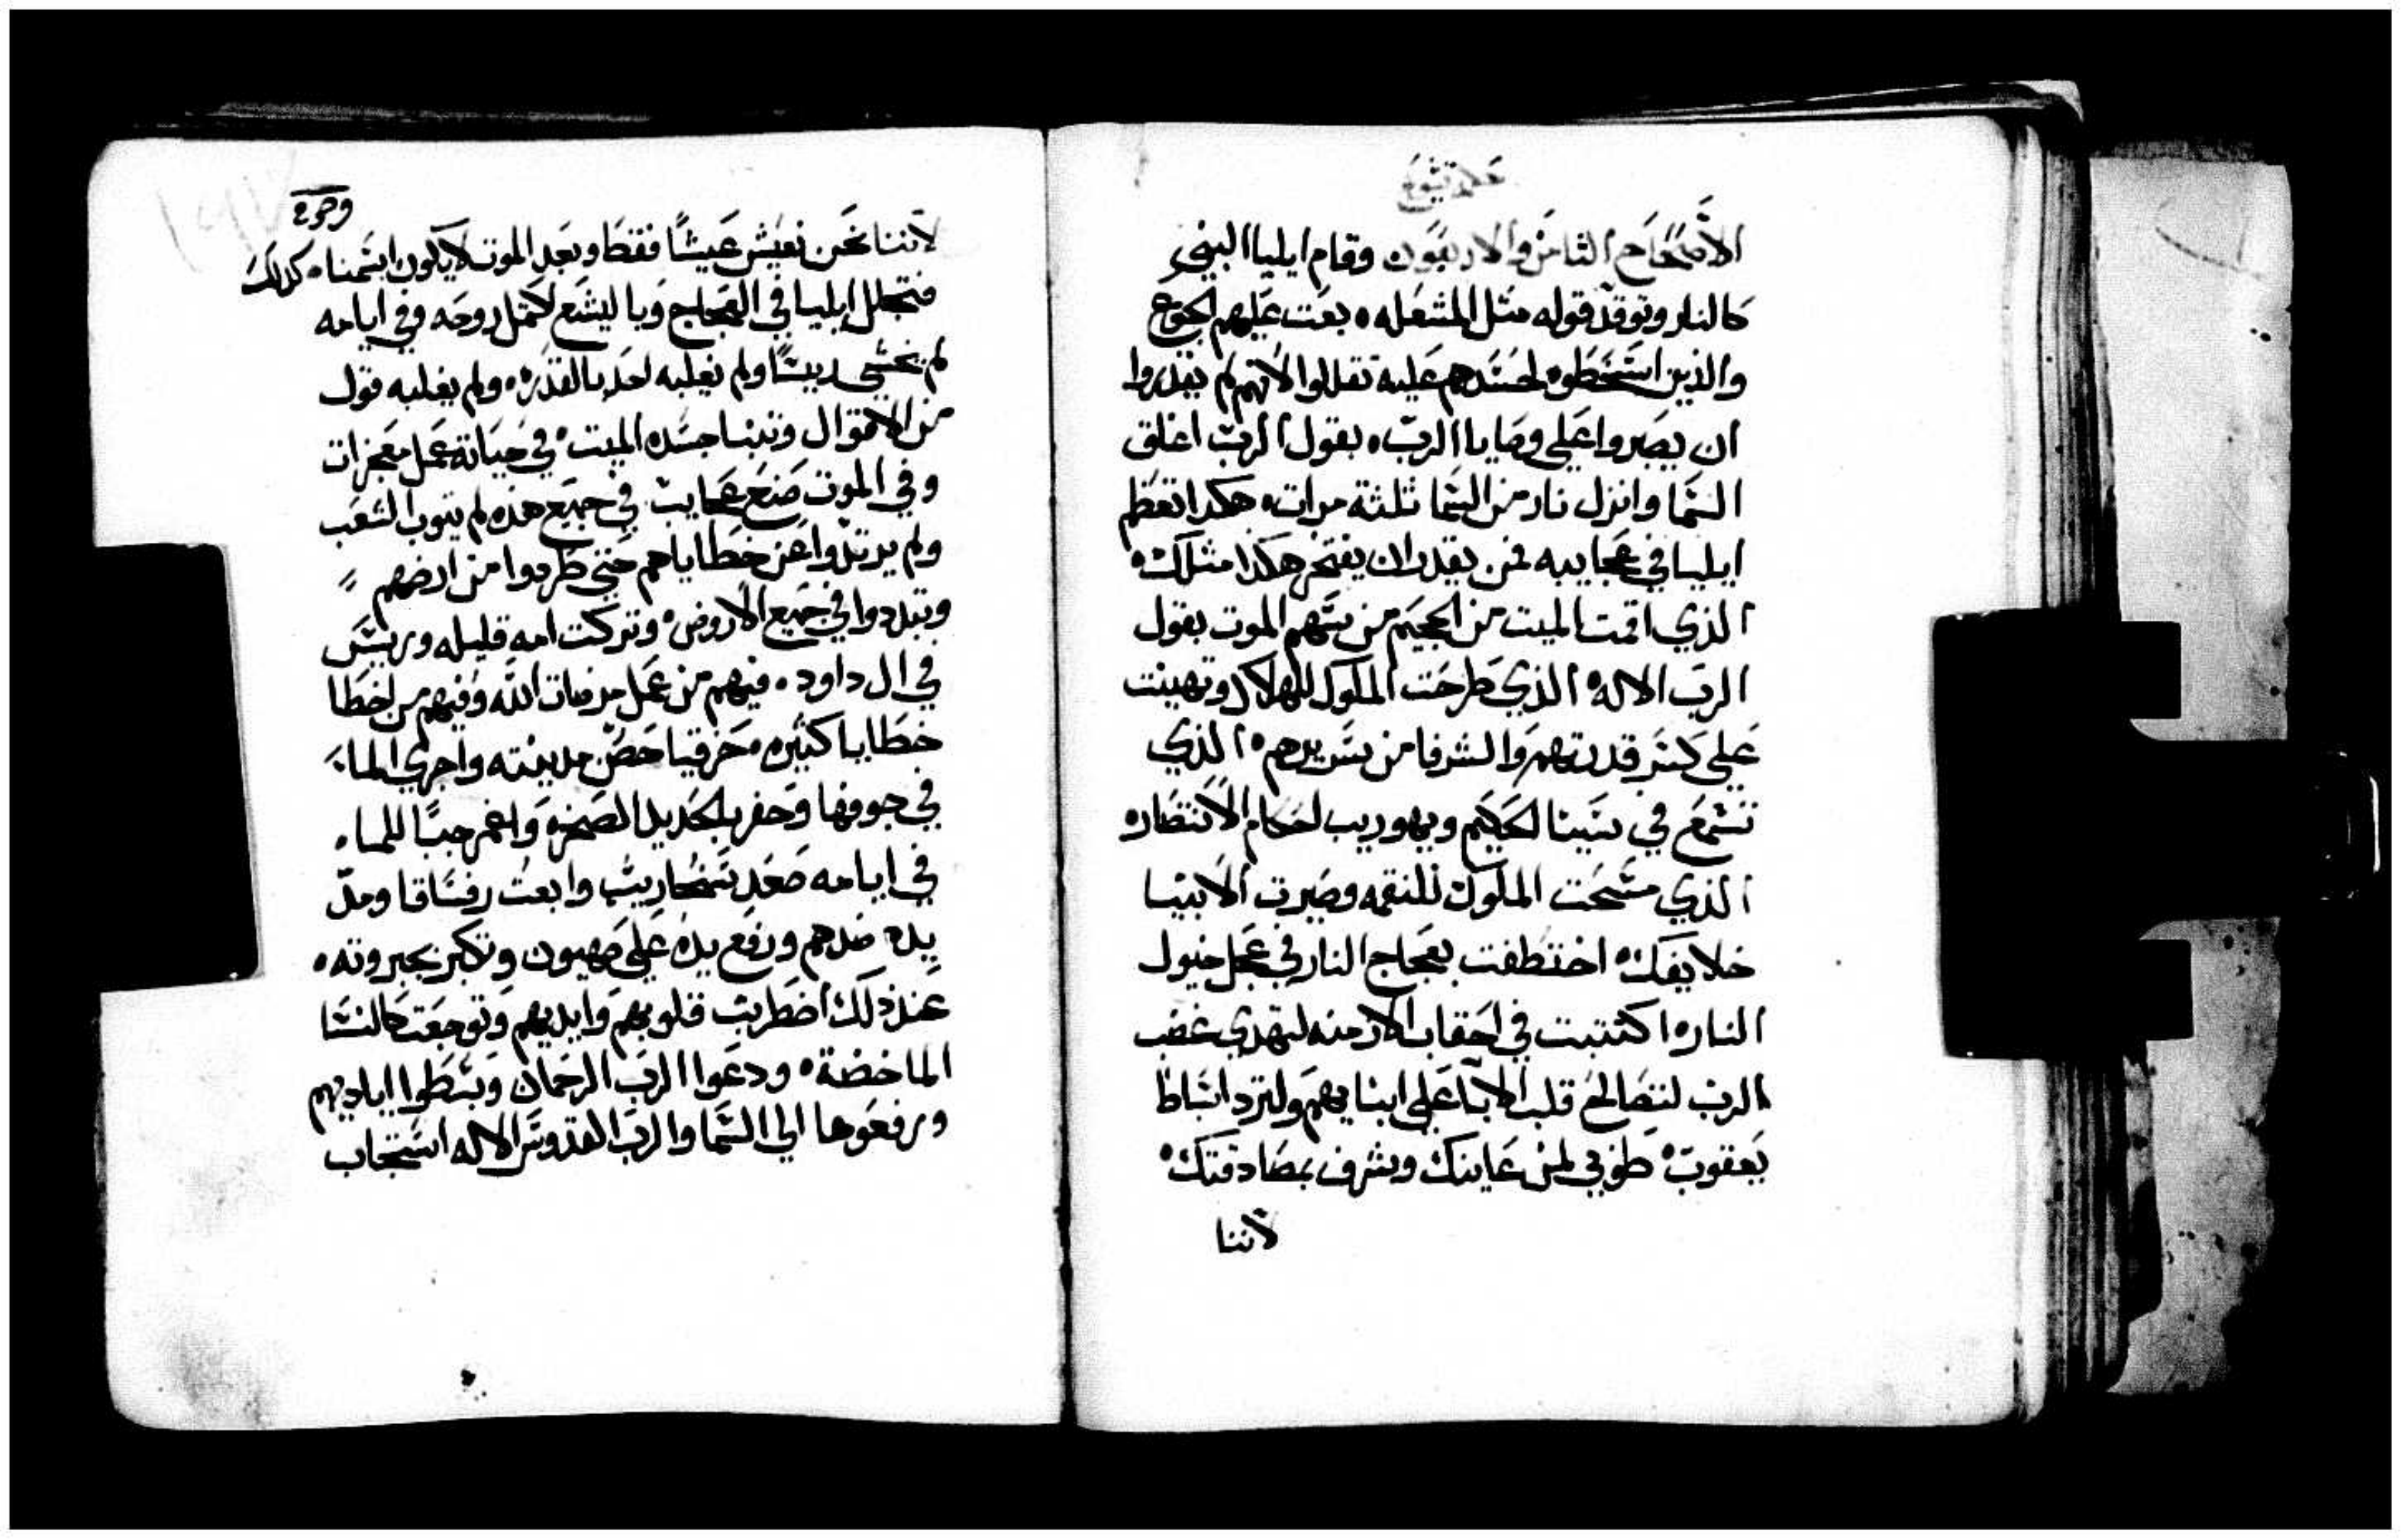 الأصحاح الثامن والاربعون وقام ايليا النبي
كالنار وتوقد قوله مثل المشعله، بعت عليهم الجوع
والذين استخطوه لحسدهم عليه تقللوا لانهم لم يقدروا
ان يصبروا علي وصايا الرب، بقول الرب اغلق
السما وانزل نار من السما ثلثة مرات، هكدا تعظم
ايليا في عجايبه فمن يقدر ان يفتخر هكدا مثلك،
الذي اقمت الميت من الجحيم من سهم الموت بقول
الرب الاله، الذي طرحت الملوك للهلاك وتهينت
علي كسر قدرتهم والشرفا من سريرهم، الذي
تسمع في سينا الحكيم وبهوريب احكام الانتصاره
الذي مسحت الملوك للنقمه وصيرت الانبيا
خلايفك، اختطفت بعجاج النار في عجل خيول
الناره اكتتبت في احقاب الازمنه لتهدي غضب
الرب لتصالح قلب الابا علي ابنايهم ولترد اسباط
يعقوب، طوبي لمن عاينك وبشرف بصادقتك،
لاننا
لاننا نحن نعيش عيشًا فقط وبعد الموت لا يكون اسمنا، كدلك
فتجلل ايليا في العجاج وباليشع كمل روحه وفي ايامه
لم يخشي ريسًا ولم يغلبه احد بالقدره، ولم يغلبه قول
من الاقوال وتنبا جسده الميت، في حياته عمل معجزات
وفي الموت صنع عجايب في جميع هذه لم يتوب الشعب
ولم يرتدوا عن خطاياهم حتي طردوا من ارضهم
وتبددوا في جميع الاروض، وتركت امه قليله وريس
في ال داود، فيهم من عمل مرضات الله وفيهم من اخطا
خطايا كثيره، حزقيا حصن مدينته واجري الماء
في جوفها وحفر بالحديد الصخره واعمر جبًا للماء
في ايامه صعد سنحاريب وابعت رفساقا ومدّ
يده ضدهم ورفع يده علي صهيون وتكبر بجبروته،
عند ذلك اضطربت قلوبهم وايديهم وتوجعت كالنسا
الماخضة، ودعوا الرب الرحمان وبسطوا اياديهم
ورفعوها الي السما والرب القدوس الاله استجاب